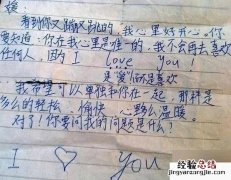 媛:
看到你又蹦又跳的,我心里好开心。你
要知道,你在我心里是唯一的,我不会再去喜欢
任何人,因为 I love you !
是"爱"而不是喜欢
我希望可以单独和你在一起,那样是
多么的轻松、愉快,心里多么温暖。
对了!你要问我的问题是什么?
I ♡ you
经验总结
www.lanrenjingyan.com